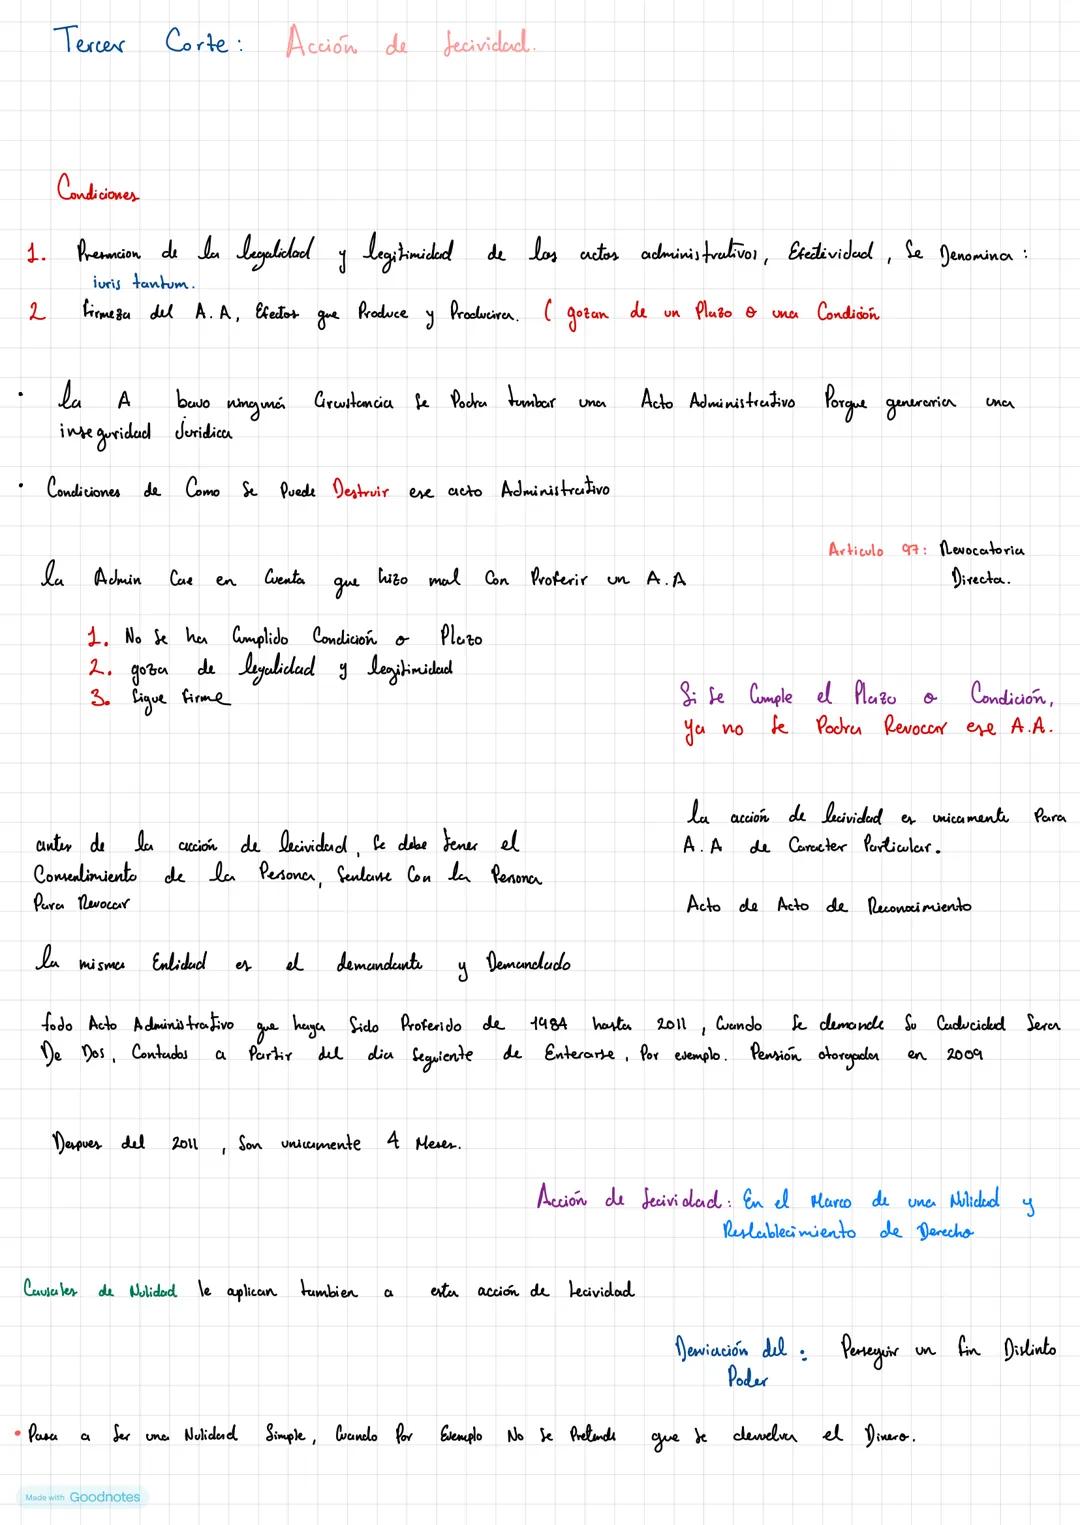 Tercer Corte: Acción de lecividad.
Condiciones
1. Presuncion de la legalidad y legitimidad de los actos administrativos, Efectividad, Se Denomina:
iuris tantum.
2 Firmeza del A.A, Efectos que Produce y Producira. ( gozan de un Plazo o una Condición
• la A bajo ninguná Circustancia Se Podra tumbar una Acto Administrativo Porque generaria una
inseguridad Juridica
• Condiciones de Como Se Puede Destruir ese acto Administrativo
Articulo 97: Revocatoria
Directa.
la Admin Cae en Cuenta que hizo mal Con Proferir un A.A
1. No Se ha Cumplido Condición o Plazo
2. goza de legalidad y legitimidad
3. Sigue Firme
Si Se Cumple el Plazo o Condición,
ya no Se Podra Revocar ese A.A.
la acción de lecividad es unicamente Para
A.A de Caracter Particular.
antes de la acción de lecividad, Se debe tener el
Consentimiento de la Persona, Sentarse Con la Persona
Para Revocar
Acto de Acto de Reconocimiento
la misma Entidad es el demandante y Demandado
todo Acto Administrativo que haya Sido Proferido de 1984 hasta 2011, Cuando Se demande Su Caducidad Sera
De Dos, Contados a Partir del dia Seguiente de Enterarse, Por ejemplo. Pensión otorgada en 2009
Despues del 2011, Son unicamente 4 Meses.
Acción de lecividad: En el Marco de una Nulidad y
Restablecimiento de Derecho
Causales de Nulidad le aplican tambien a esta acción de Lecividad
Desviación del Poder: Perseguir un fin Distinto
• Pasa a Ser una Nulidad Simple, Cuando Por Ejemplo No Se Pretende que se devuelva el Dinero.
Made with Goodnotes